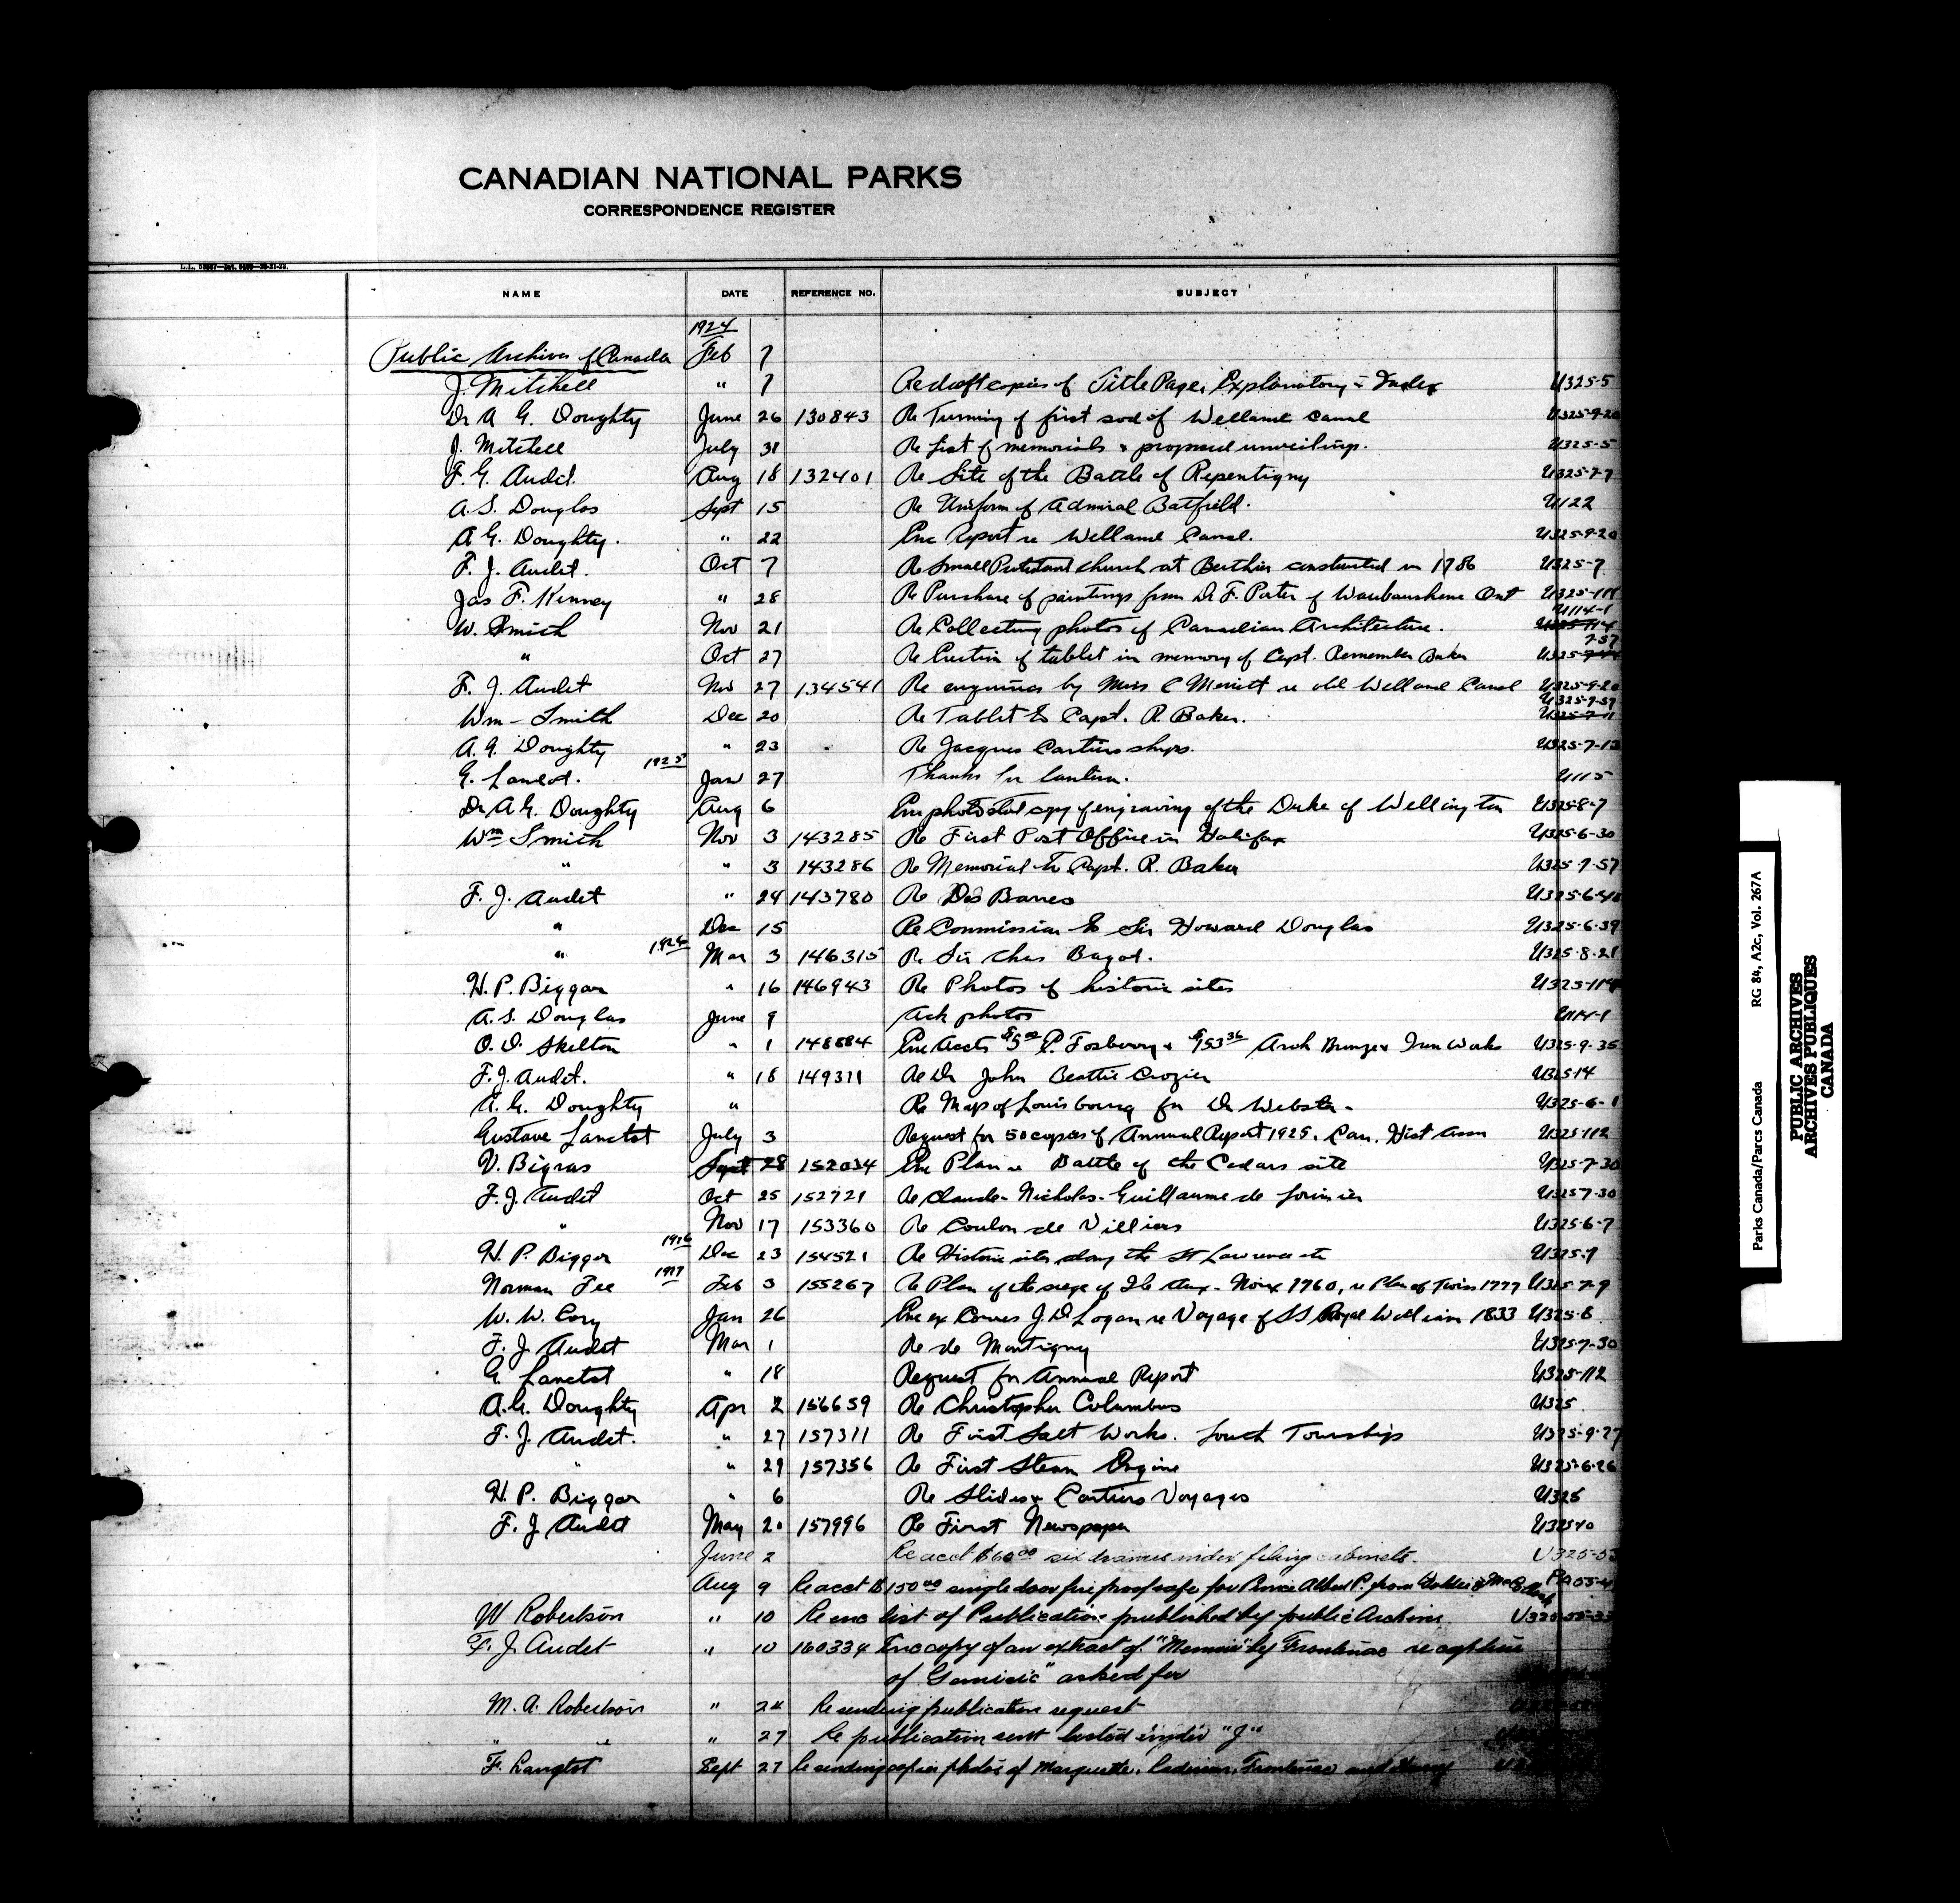 CANADIAN NATIONAL PARKS
CORRESPONDENCE REGISTER
NAME DATE REFERENCE NO. SUBJECT
1924
Public Archives of Canada Feb 7
J. Mitchell " 7 Re draft copies of Title Page, Explanatory & Index U325-5
Dr A G. Doughty June 26 130843 Re Turning of first sod of Welland Canal U325-9-20
J. Mitchell July 31 Re List of memorials & proposed unveilings. U325-5
F. G. Audet. Aug 18 132401 Re Site of the Battle of Repentigny U325-7-7
A. S. Douglas Sept 15 Re Uniform of Admiral Batfield. U122
A G. Doughty. " 22 Enc Report re Welland Canal. U325-9-20
F. J. Audet. Oct 7 Re Small Protestant church at Berthier constructed in 1786 U325-7
Jas F. Kenney " 28 Re Purchase of paintings from Dr F. Porter of Waubaushene Ont
U114-1
W. Smith Nov 21 Re Collecting photos of Canadian Architecture. U325-114
7-57
" Oct 27 Re Erection of tablet in memory of Capt. Remember Baker U325-
F. J. Audet Nov 27 134541 Re enquiries by Miss C Merritt re old Welland Canal U325-9-20
U325-7-57
Wm Smith Dec 20 Re Tablet to Capt. R. Baker. U325-7-11
A. G. Doughty " 23 Re Jacques Cartiers ships. U325-7-13
1925
G. Lanctot. Jan 27 Thanks for lantern. U115
Dr A. G. Doughty Aug 6 Enc photostat copy of engraving of the Duke of Wellington U325-8-7
Wm Smith Nov 3 143285 Re First Post Office in Halifax U325-6-30
" " 3 143286 Re Memorial to Capt. R. Baker U325-7-57
F. J. Audet " 24 143780 Re Des Barres U325-6-40
" Dec 15 Re Commission to Sir Howard Douglas U325-6-39
1926
" Mar 3 146315 Re Sir Chas Bagot. U325-8-21
H. P. Biggar " 16 146943 Re Photos of historic sites U325-114
A. S. Douglas June 9 Ack photos U114-1
O. D. Skelton " 1 148884 Enc Accts $5.00 P. Fosbery & $953.36 Arch Bronze & Iron Works U325-9-35
F. J. Audet. " 18 149311 Re Dr John Beattie Crozier U325-14
A. G. Doughty " Re Map of Louisbourg for Dr Webster. U325-6-1
Gustave Lanctot July 3 Request for 50 copies of Annual Report 1925. Can. Hist Assn U325-112
V. Bigras Sept 28 152034 Enc Plan re Battle of the Cedars site U325-7-30
F. J. Audet Oct 25 152721 Re Claude-Nicholas-Guillaume de Lorimier U325 7-30
" Nov 17 153360 Re Coulon de Villiers U325-6-7
1926
H. P. Biggar Dec 23 154521 Re Historic sites along the St Lawrence etc U325-7
1927
Norman Fee Feb 3 155267 Re Plan of the siege of Ile Aux-Noix 1760, re Plan of Twiss 1777 U325-7-9
W. W. Cory Jan 26 Enc ex Corres J. D Logan re Voyage of SS Royal William 1833 U325-8
F. J. Audet Mar 1 Re de Montigny U325-7-30
G. Lanctot " 18 Request for Annual Report U325-112
A. G. Doughty Apr 2 156659 Re Christopher Columbus U325
F. J. Audet. " 27 157311 Re First Salt Works. Louth Township U325-9-27
" " 29 157356 Re First Steam Engine U325-6-26
H. P. Biggar " 6 Re Slides & Cartiers Voyages U325
F. J. Audet May 20 157996 Re First Newspaper U325-10
June 2 Re acct $60.00 six drawer index filing cabinets.
Aug 9 Re acct $150.00 single door fire proof safe for Prince Albert P. from
W Robertson " 10 Re enc list of Publications published by public Archives
F. J. Audet " 10 160334 Enc copy of an extract of "Memoir" by Frontenac re capture
of asked for
M. A. Robertson " 24 Re sending publication request
" " " 27 Re publication sent listed under "J"
F. Langtot Sept 27 Re sending copies photos of Marquette, Frontenac and
RG 84, A2c, Vol. 267A
Parks Canada/Parcs Canada
PUBLIC ARCHIVES
ARCHIVES PUBLIQUES
CANADA